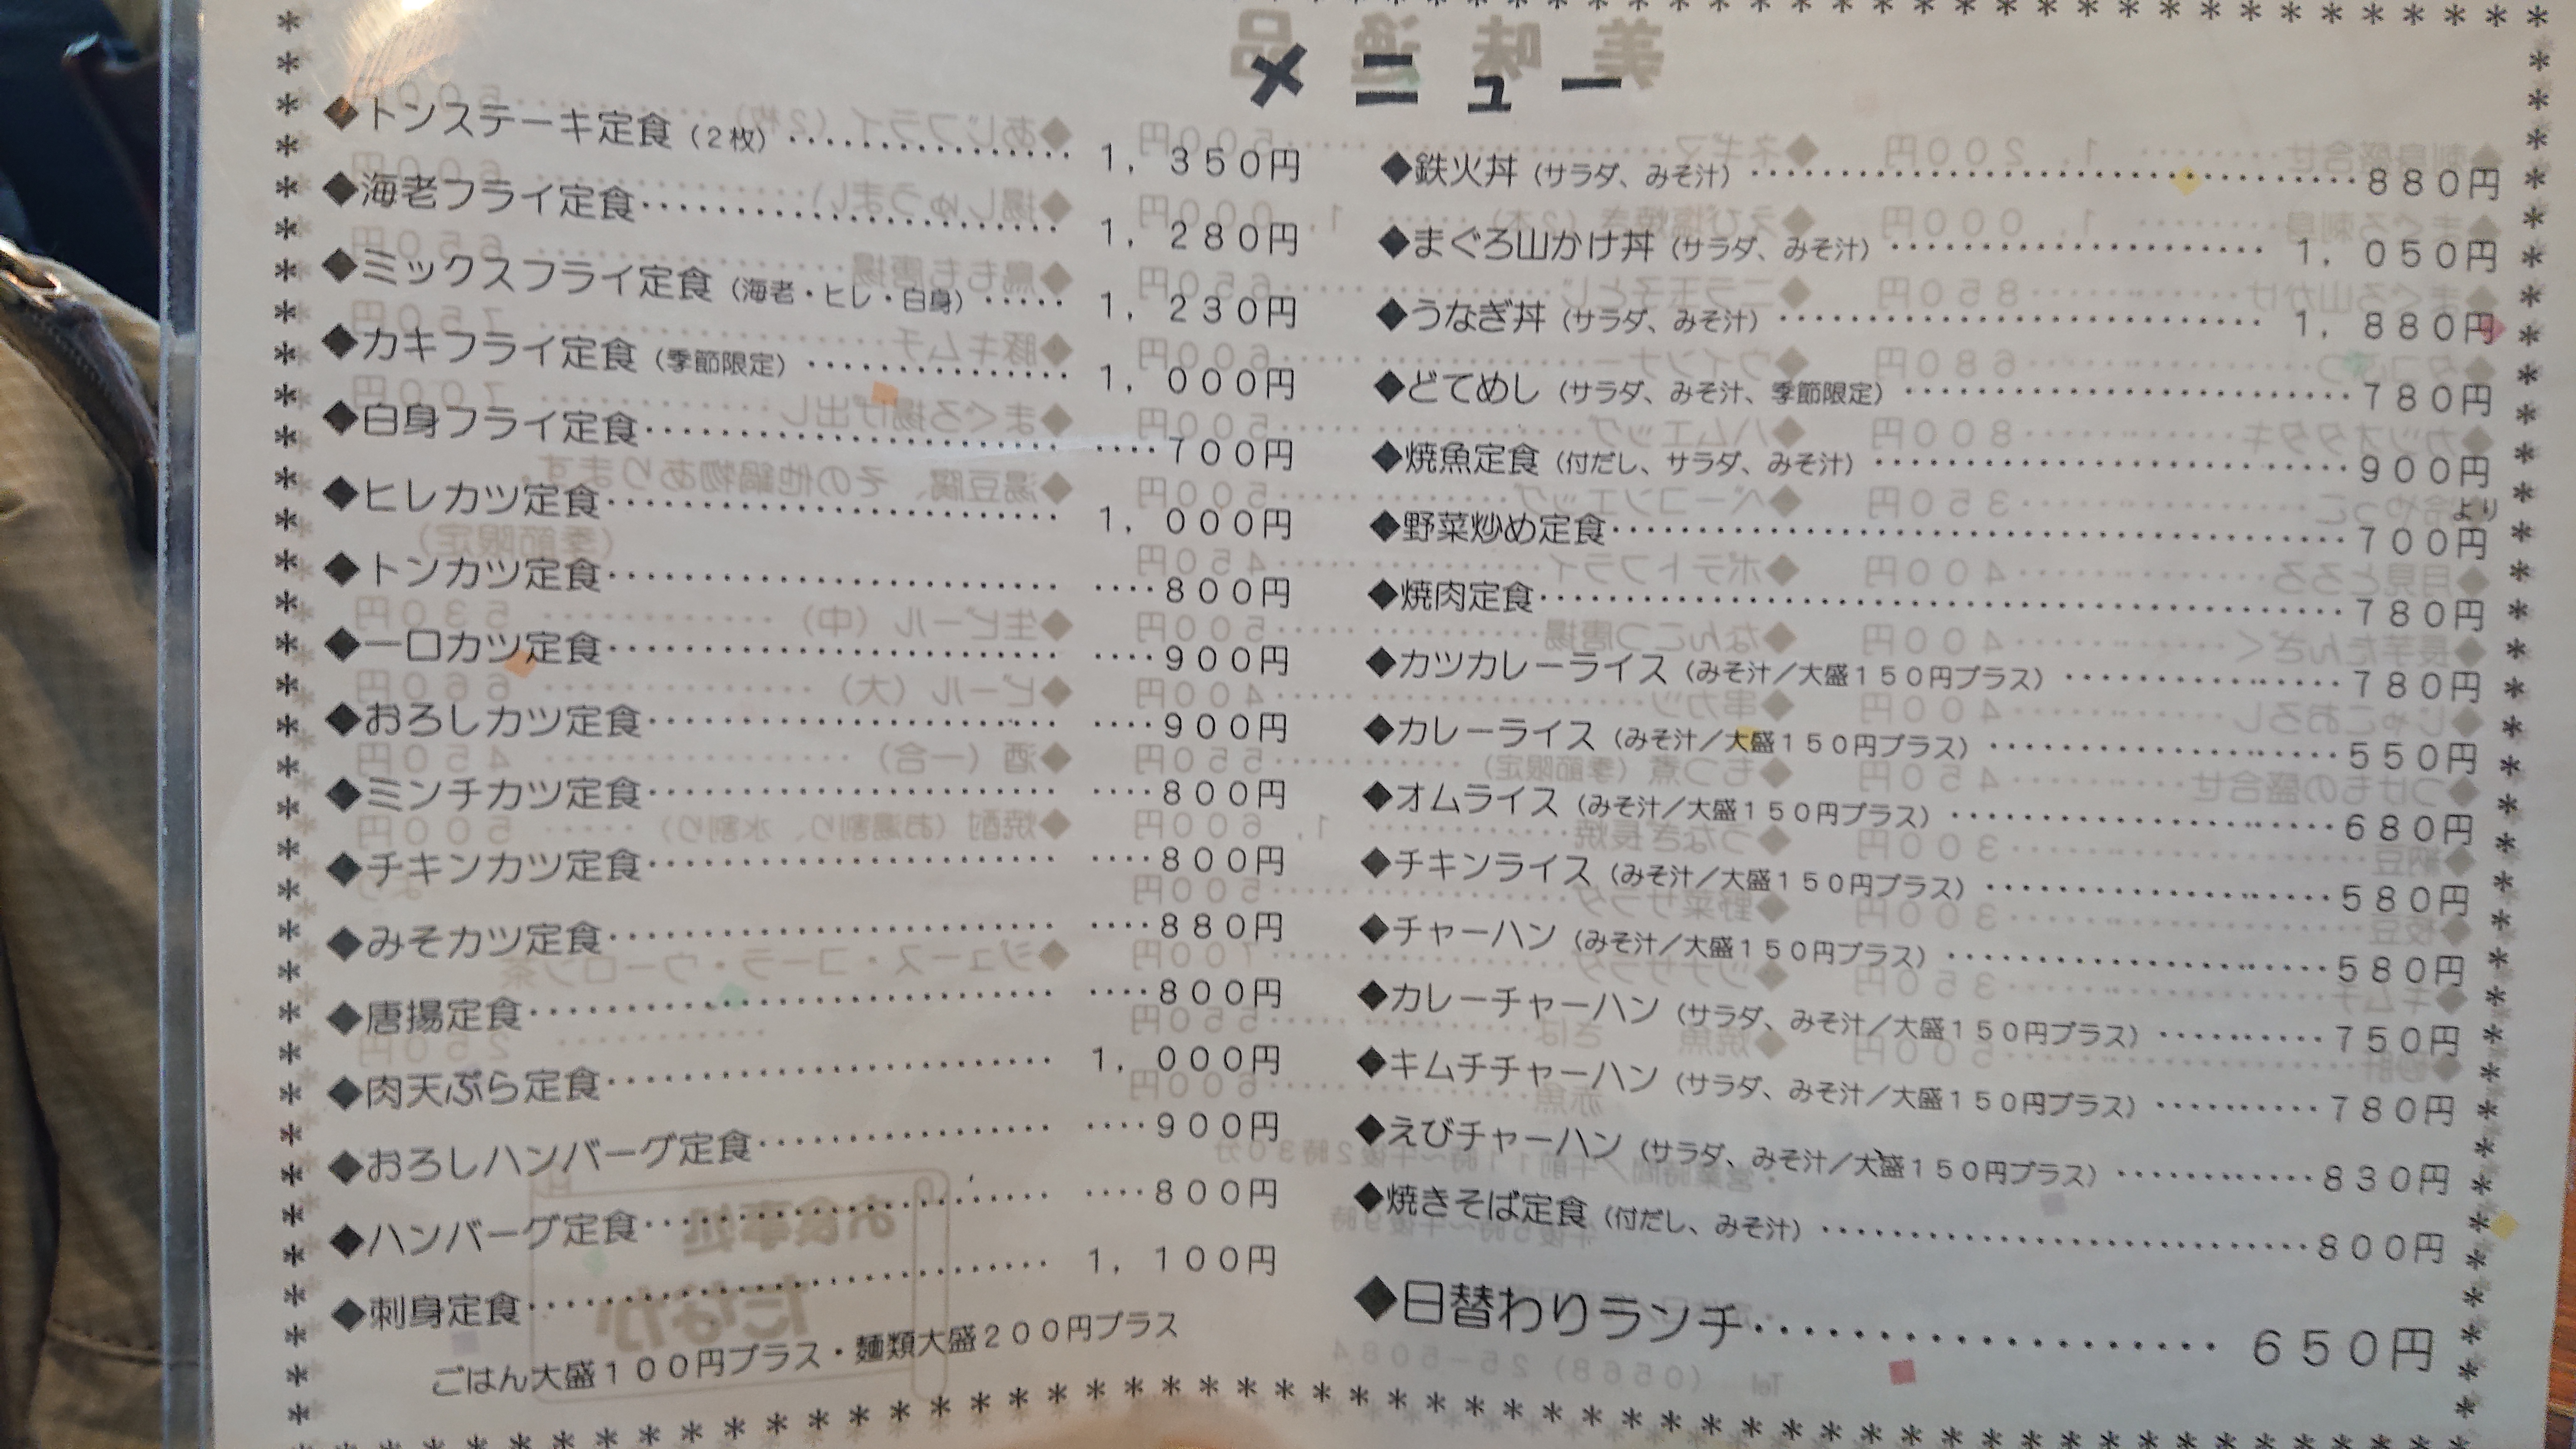 メニュー
◆トンステーキ定食（2枚）‥‥‥‥‥‥1，350円
◆海老フライ定食‥‥‥‥‥‥‥‥‥1，280円
◆ミックスフライ定食（海老・ヒレ・白身）‥‥‥1，230円
◆カキフライ定食（季節限定）‥‥‥‥‥‥1，000円
◆白身フライ定食‥‥‥‥‥‥‥‥‥700円
◆ヒレカツ定食‥‥‥‥‥‥‥‥‥1，000円
◆トンカツ定食‥‥‥‥‥‥‥‥‥800円
◆一口カツ定食‥‥‥‥‥‥‥‥‥900円
◆おろしカツ定食‥‥‥‥‥‥‥‥‥900円
◆ミンチカツ定食‥‥‥‥‥‥‥‥‥800円
◆チキンカツ定食‥‥‥‥‥‥‥‥‥800円
◆みそカツ定食‥‥‥‥‥‥‥‥‥880円
◆唐揚定食‥‥‥‥‥‥‥‥‥800円
◆肉天ぷら定食‥‥‥‥‥‥‥‥‥1，000円
◆おろしハンバーグ定食‥‥‥‥‥‥‥900円
◆ハンバーグ定食‥‥‥‥‥‥‥‥‥800円
◆刺身定食‥‥‥‥‥‥‥‥‥1，100円
ごはん大盛100円プラス・麺類大盛200円プラス
◆鉄火丼（サラダ、みそ汁）‥‥‥‥‥‥‥‥‥880円
◆まぐろ山かけ丼（サラダ、みそ汁）‥‥‥‥‥‥1，050円
◆うなぎ丼（サラダ、みそ汁）‥‥‥‥‥‥‥‥1，880円
◆どてめし（サラダ、みそ汁、季節限定）‥‥‥‥‥‥780円
◆焼魚定食（付だし、サラダ、みそ汁）‥‥‥‥‥‥900円
より
◆野菜炒め定食‥‥‥‥‥‥‥‥‥‥‥700円
◆焼肉定食‥‥‥‥‥‥‥‥‥‥‥780円
◆カツカレーライス（みそ汁／大盛150円プラス）‥‥‥‥‥780円
◆カレーライス（みそ汁／大盛150円プラス）‥‥‥‥‥550円
◆オムライス（みそ汁／大盛150円プラス）‥‥‥‥‥680円
◆チキンライス（みそ汁／大盛150円プラス）‥‥‥‥‥580円
◆チャーハン（みそ汁／大盛150円プラス）‥‥‥‥‥580円
◆カレーチャーハン（サラダ、みそ汁／大盛150円プラス）‥‥‥‥750円
◆キムチチャーハン（サラダ、みそ汁／大盛150円プラス）‥‥‥‥780円
◆えびチャーハン（サラダ、みそ汁／大盛150円プラス）‥‥‥‥830円
◆焼きそば定食（付だし、みそ汁）‥‥‥‥‥‥‥800円
◆日替わりランチ‥‥‥‥‥‥‥‥650円